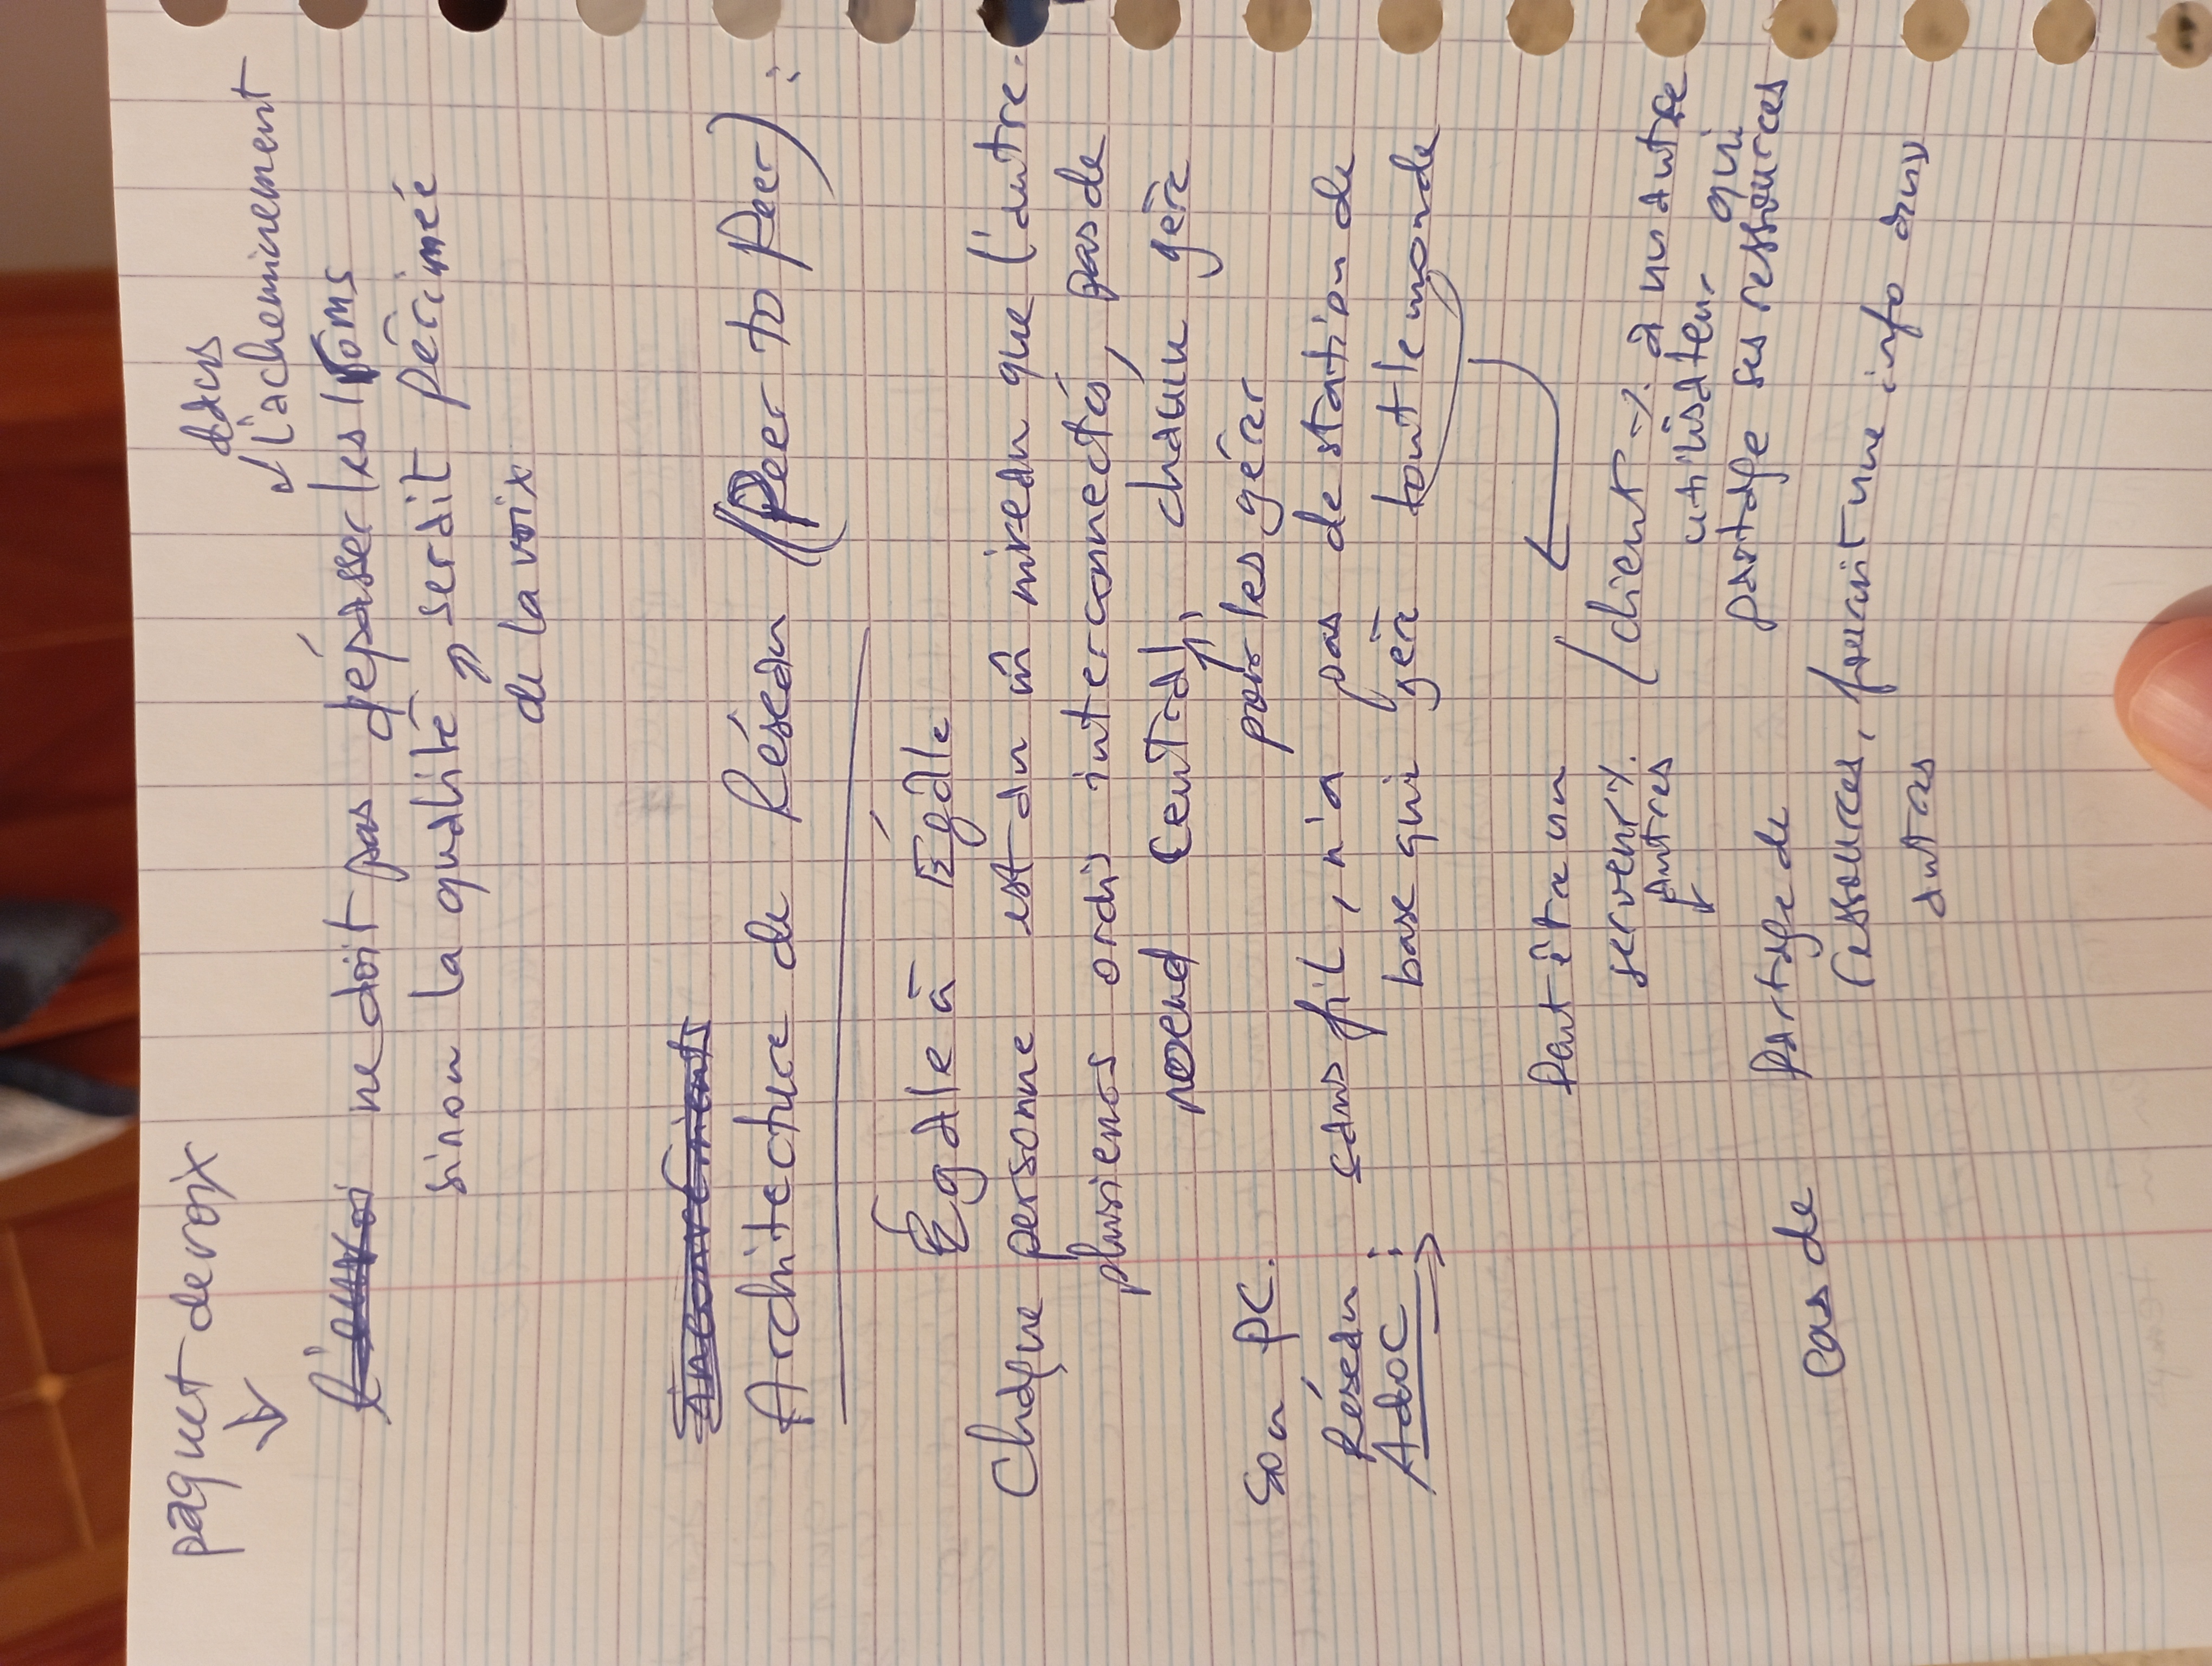 paquet de voix
dans
l'acheminement
l'envoi ne doit pas dépasser les ms
sinon la qualité serait périmée
de la voix
inconvénients
Architecture de Réseau (Peer to Peer) :
Égale à Égale
Chaque personne est au m̂ niveau que l'autre.
plusieurs ordis interconnectés, pas de
noeud central, chacun gère
son PC. pour les gérer
Réseau sans fil, n'a pas de station de
Adoc : base qui gère tout le monde
Peut être un
serveur /. / client /. à un autre
autres utilisateur qui
partage ses ressources
cas de Partage de
ressources, fournit une info aux
autres